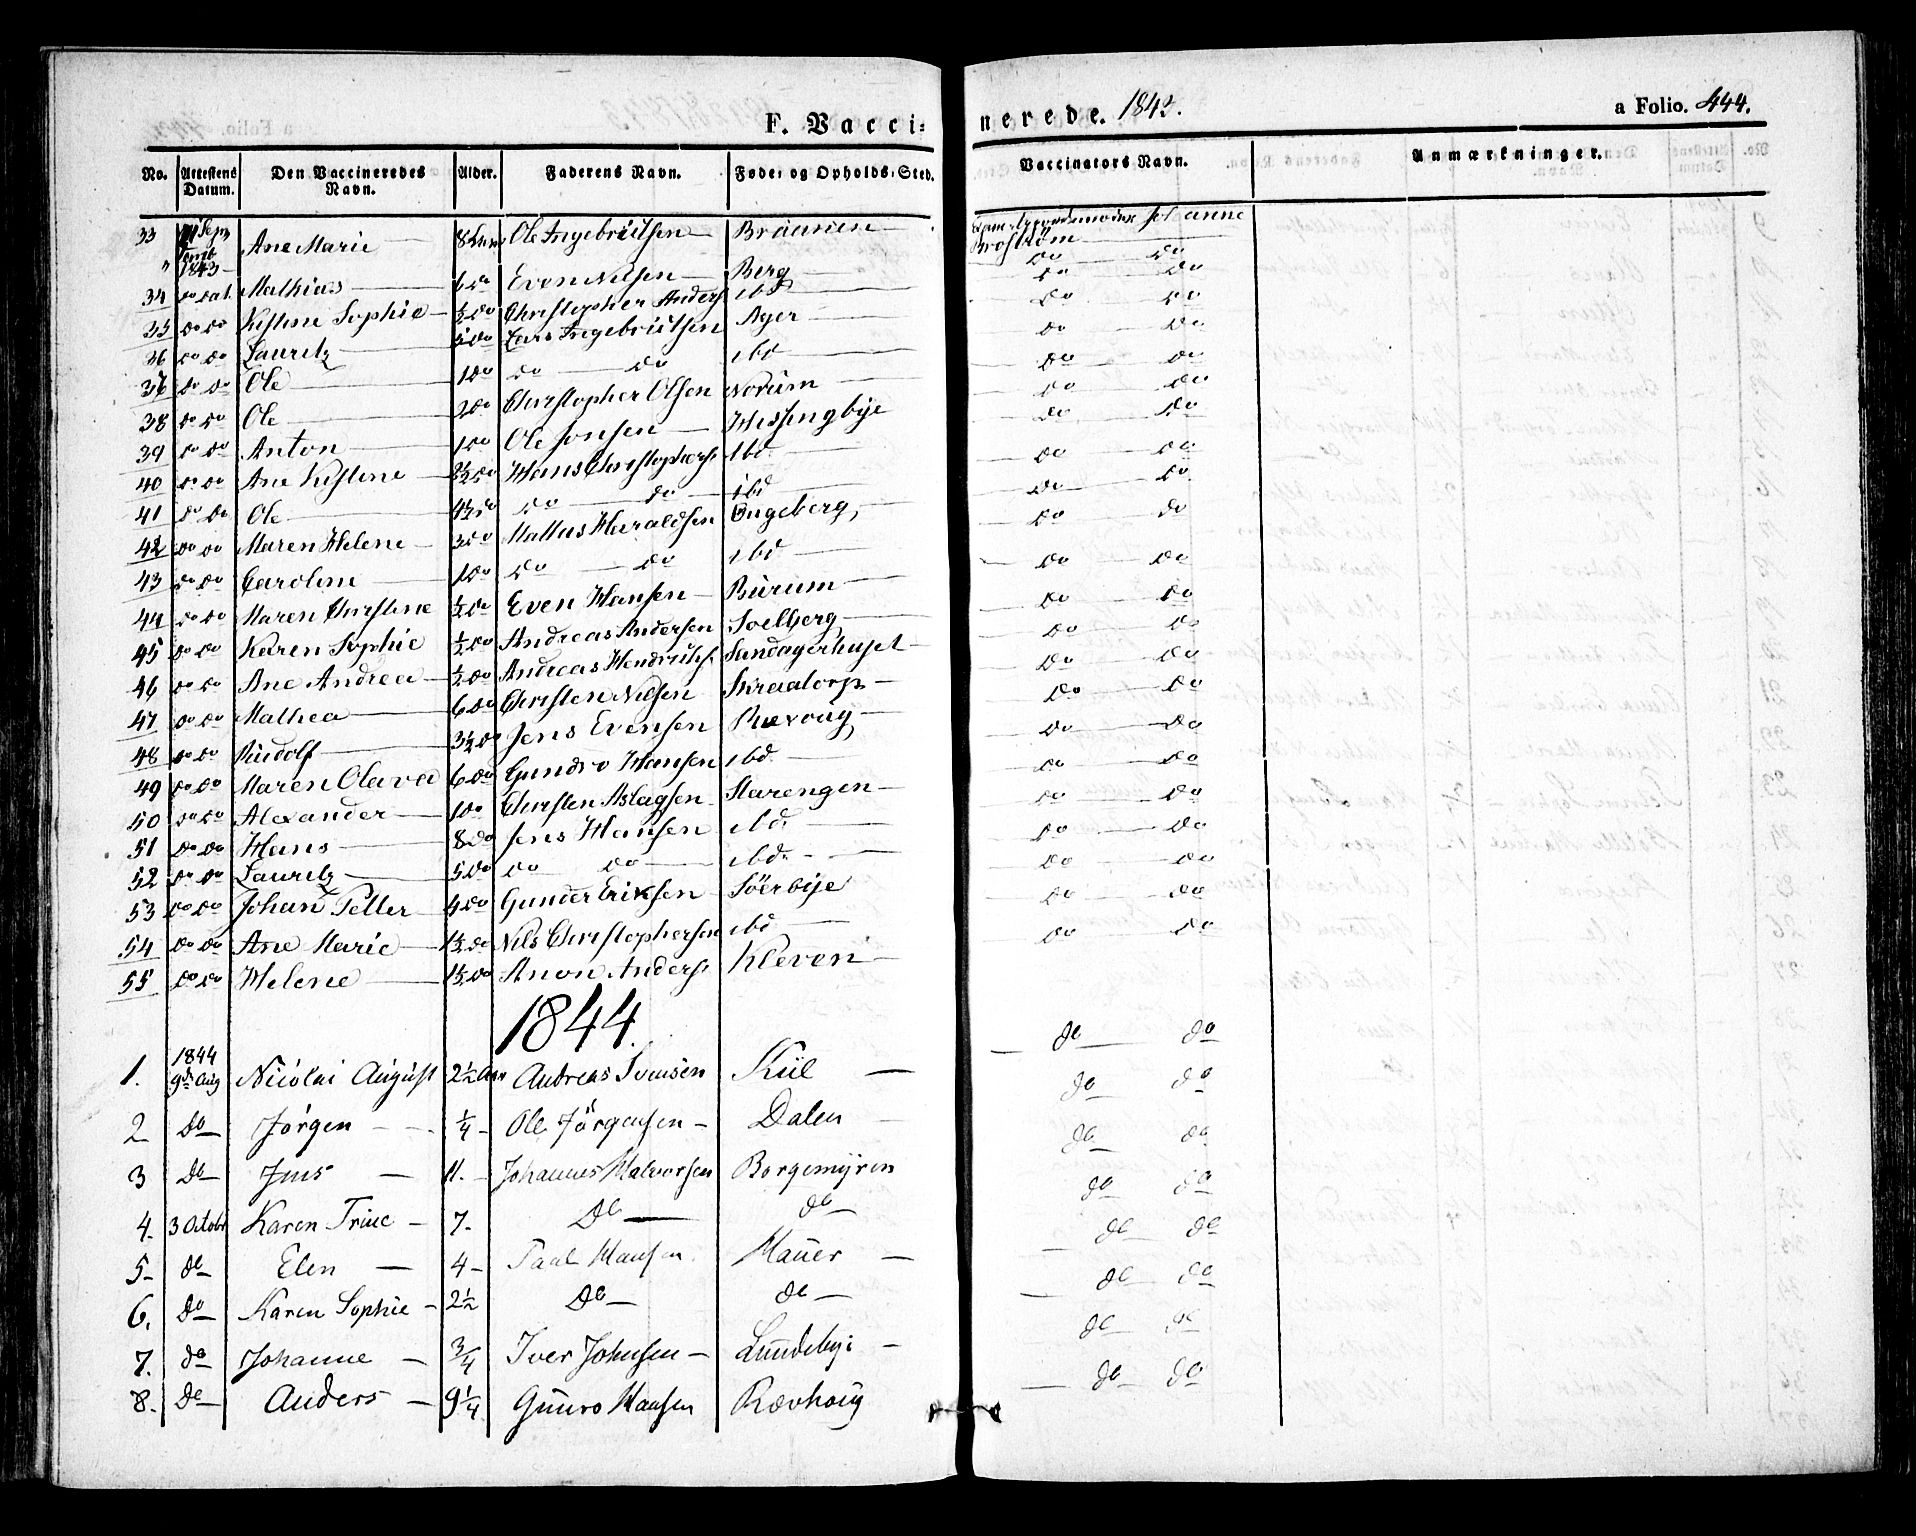 F. Vacci-nerede. 1843. a Folio. 444.
No. Attestens Datum. Den Vaccineredes Navn. Alder. Faderens Navn. Føde- og Opholds-Sted. Vaccinators Navn. Anmærkninger.
33 1843 Ane Marie 8 Ole Ingebrietsen Braanen
Brostrøm
34 do Mathias 6 do Even Nilsen Berg do do
35 do do Kistine Sophie ½ do Christopher Anders ibd do do
36 do do Lauritz 5 do Lars Ingebrietsen Ager do do
37 do do Ole 1 do do do ibd do do
38 do do Ole 2 do Christopher Olsen Norum do do
39 do do Anton 1 do Ole Jonsen Hessingbye do do
40 do do Ane Kistine 2½ do Hans Christophers ibd do do
41 do do Ole 4½ do do do ibd do do
42 do do Maren Helene 3 do Mattias Haraldsen Ongeberg do do
43 do do Caroline 1 do do do ibd do do
44 do do Maren Christine ½ do Even Hansen Rürum do do
45 do do Karen Sophie ½ do Andreas Andersen Soelberg do do
46 do do Ane Andrea ½ do Andreas Hendrichs Sandagerhuset do do
47 do do Mathea 6 do Christen Nilsen Skraatorp do do
48 do do Rudolf 3½ do Jens Evensen Ruevoug do do
49 do do Maren Olava 6 do Gundro Hansen ibd. do do
50 do do Alexander 1 do Christen Aslagsen Starengen do do
51 do do Hans 8 do Jens Hansen ibd. do do
52 do do Lauritz 5 do do do ibd. do do
53 do do Johan Petter 4 do Gunder Eriksen Söerbye do do
54 do do Ane Marie 1½ do Nils Christophersen ibd do do
55 do do Helene 1½ do Anon Anders Kleven
1844.
1. 1844 9de Aug Nicolai August 2½ Aar Andreas Svensen Kiil do do
2 do Jørgen ¼ Ole Jörgensen Dalen do do
3 do Jens 11. Johannes Halvorsen Borgemyren do do
4. 3 Octobr Karen Trine 7. do do do do
5 do Elen 4 Paal Hansen Hauer do do
6. do Karen Sophie 2½ do do do do
7. do Johanne ¾ Iver Johnsen Lundebye do do
8. do Anders 9¼ Gunro Hansen Rævhoug do do